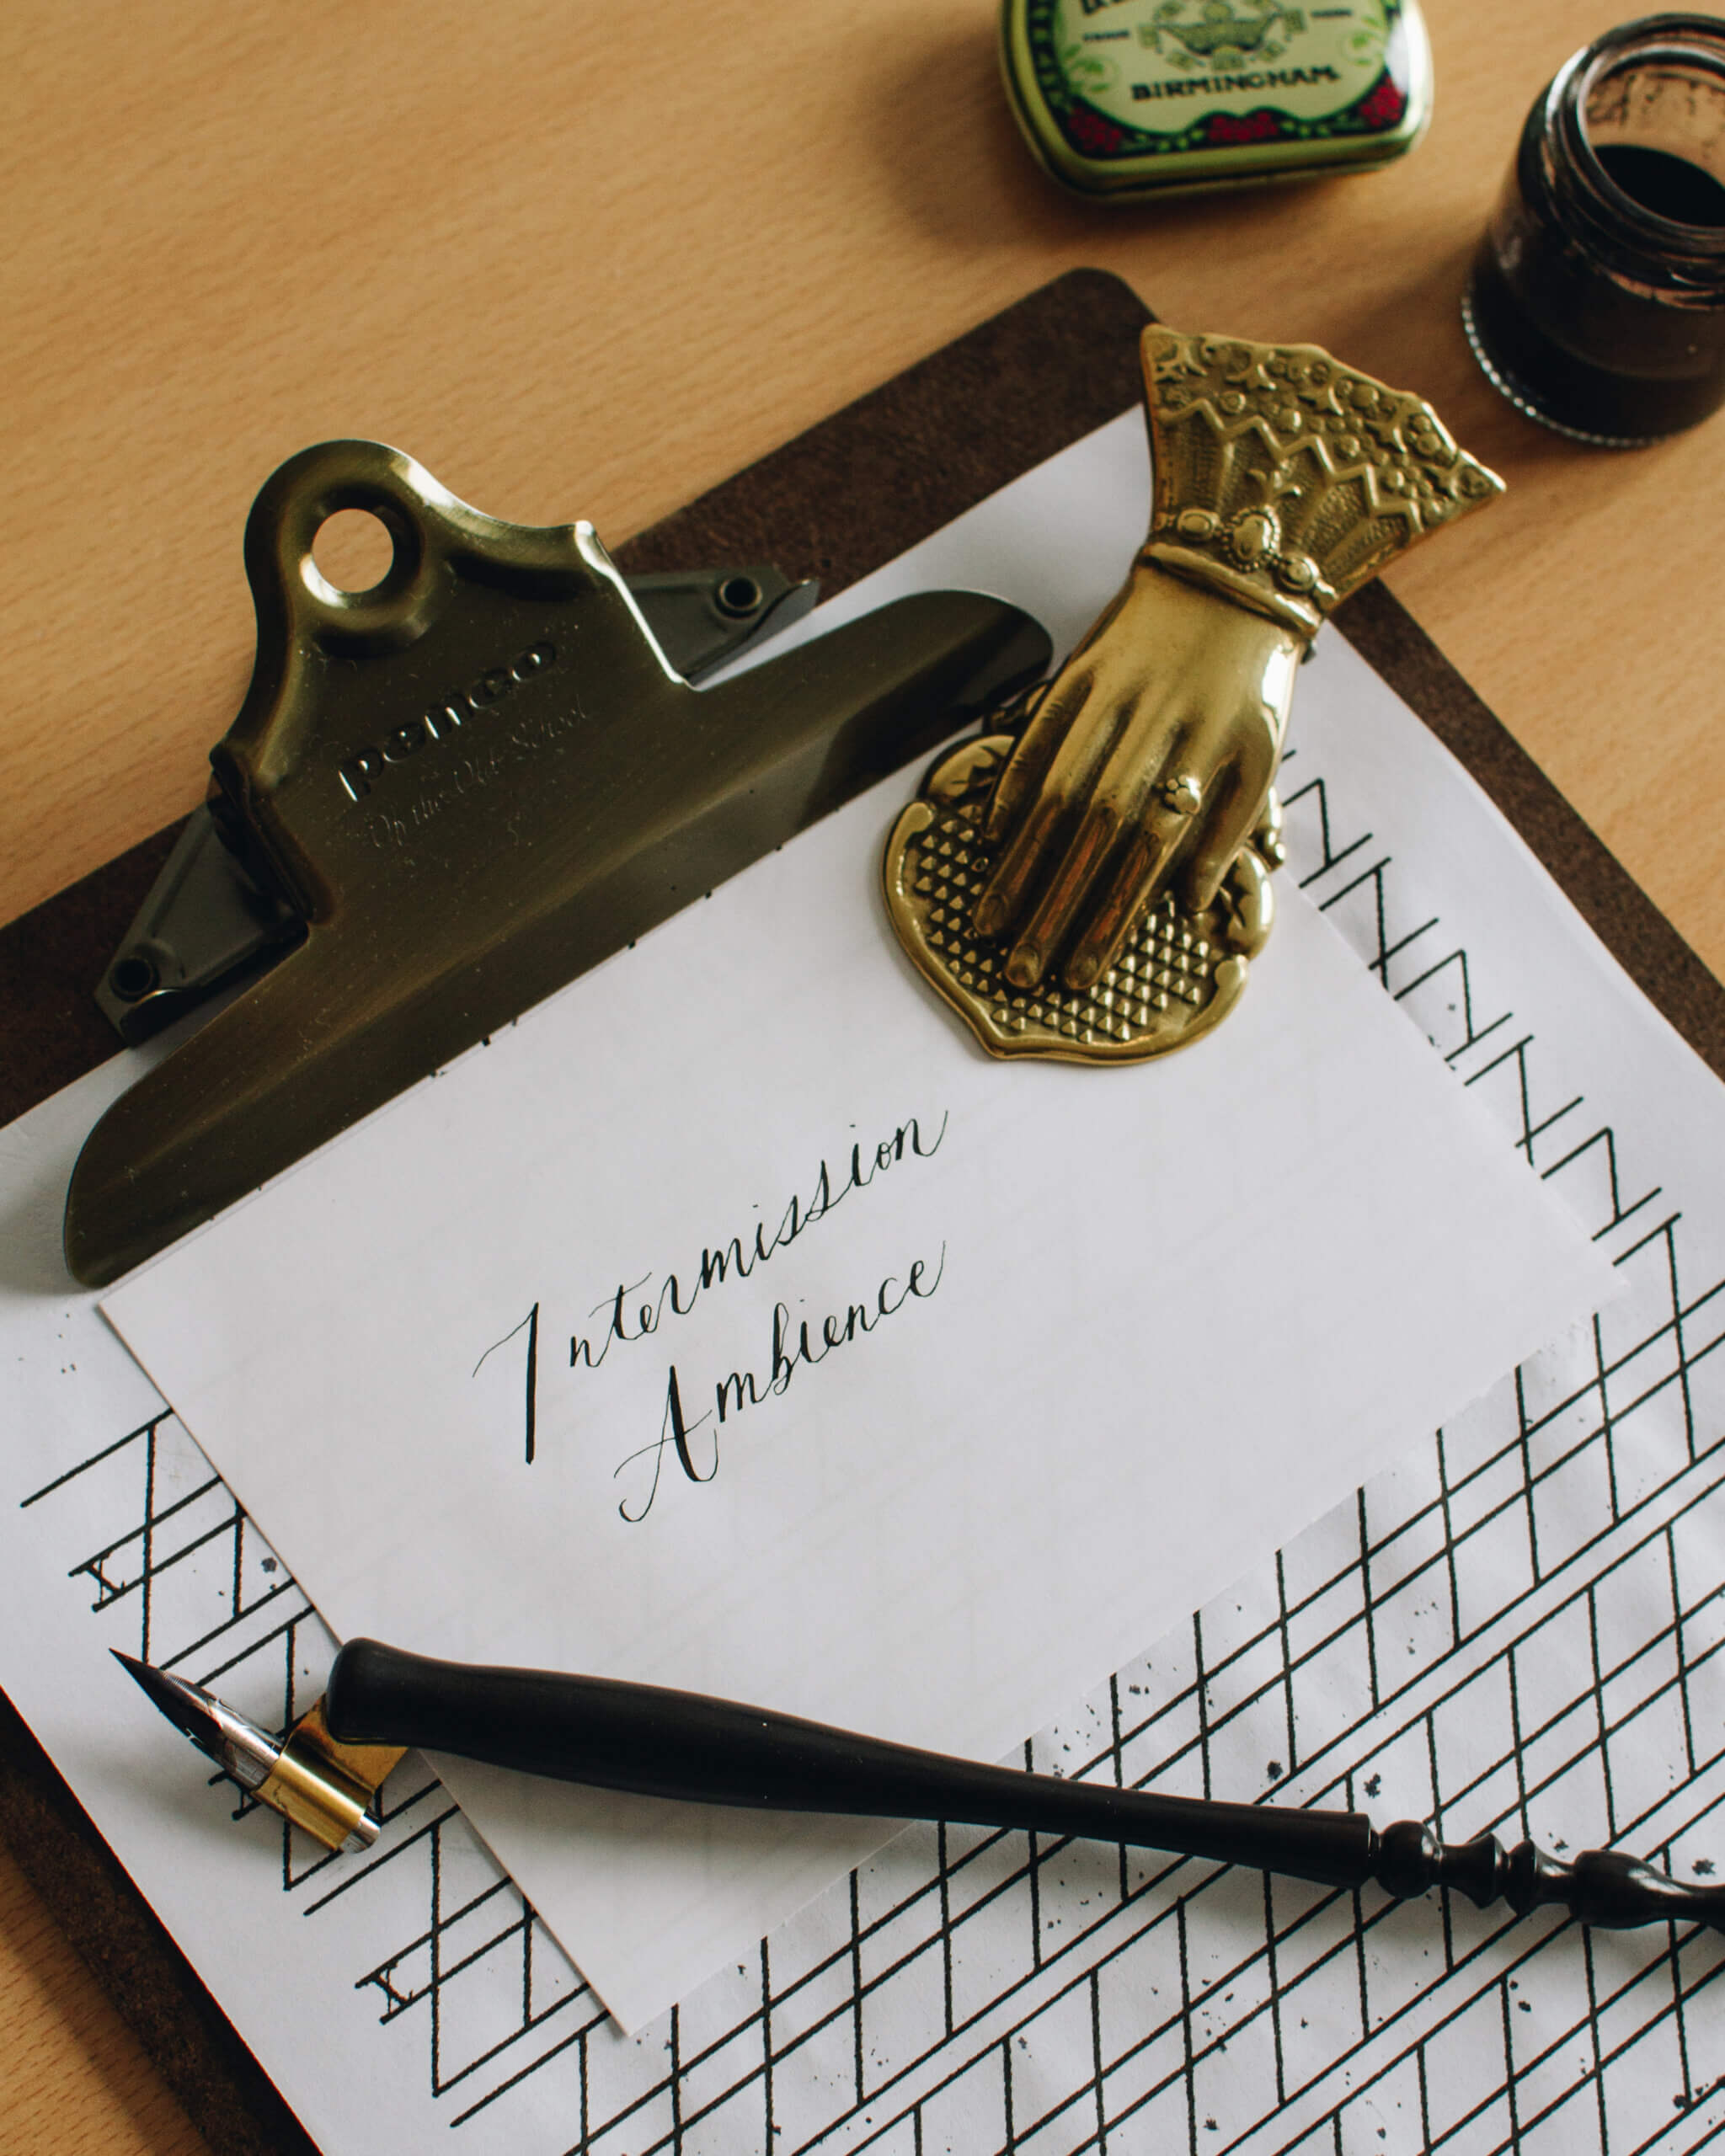 BIRMINGHAM.
penco
Of the Old School
Intermission
Ambience
X
X